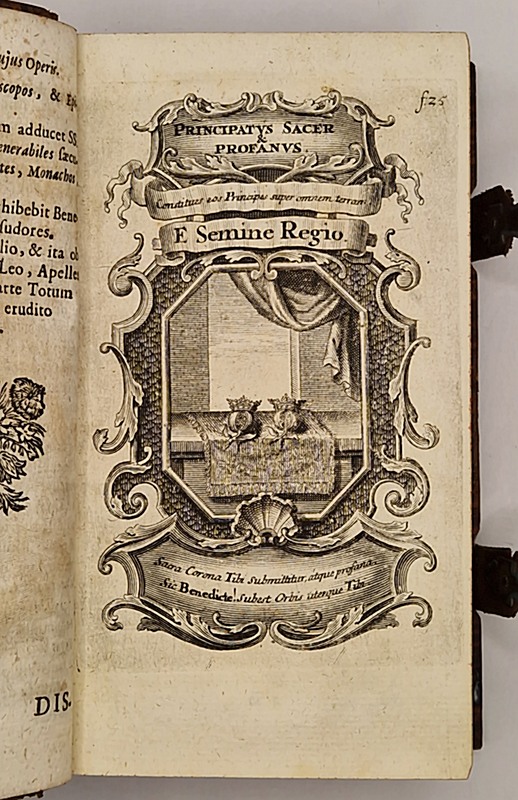 ujus Operis.
scopos, & Ep
m adducet SS.
enerabiles sæcu
tes, Monachos
hibebit Bene
sudores.
lio, & ita ob
Leo, Apelles
arte Totum
erudito
DIS-
f25
PRINCIPATVS SACER
&
PROFANVS
Constitues eos Principes super omnem terram.
E Semine Regio.
Sacra Corona Tibi submittitur, atque profana.
Sic Benedicte! subest Orbis uterque Tibi